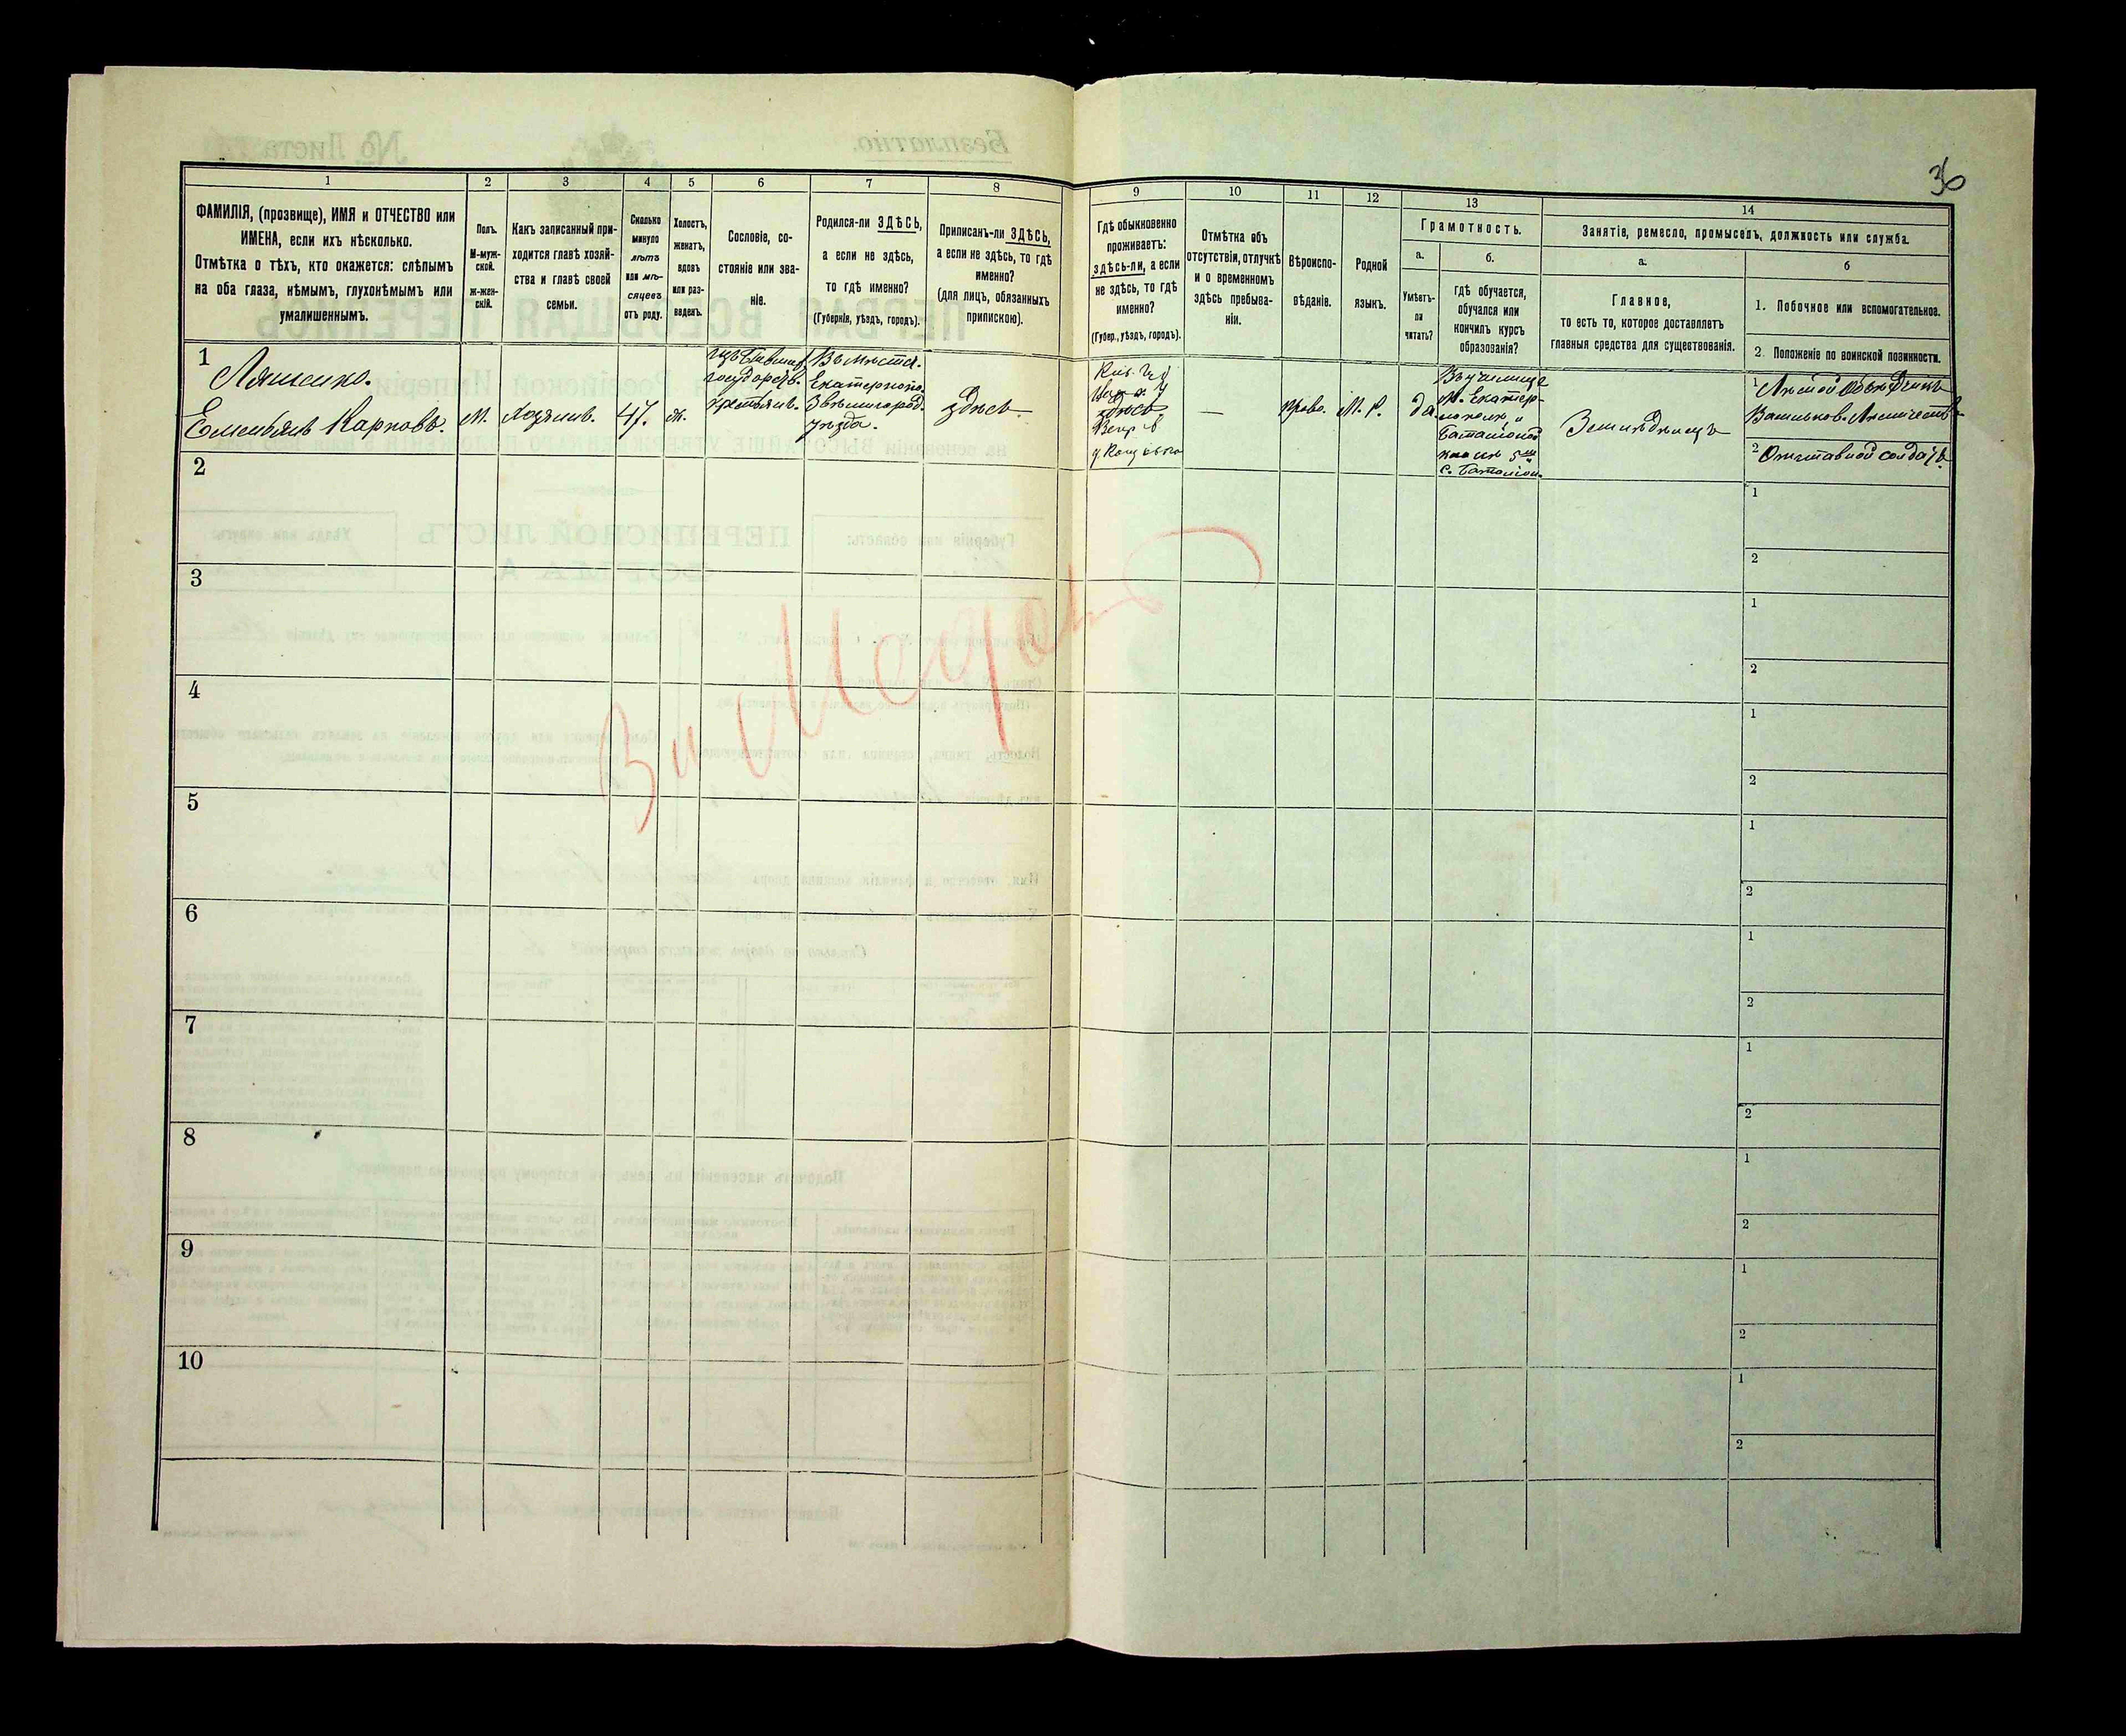 36
1 2 3 4 5 6 7 8 9 10 11 12 13 14
ФАМИЛІЯ, (прозвище), ИМЯ и ОТЧЕСТВО или
ИМЕНА, если ихъ нѣсколько.
Отмѣтка о тѣхъ, кто окажется: слѣпымъ
на оба глаза, нѣмымъ, глухонѣмымъ или
умалишеннымъ.
Полъ.
М-муж-
ской.
Ж-жен-
скій.
Какъ записанный при-
ходится главѣ хозяй-
ства и главѣ своей
семьи.
Сколько
минуло
лѣтъ
или мѣ-
сяцевъ
отъ роду.
Холостъ,
женатъ,
вдовъ
или раз-
веденъ.
Сословіе, со-
стояніе или зва-
ніе.
Родился-ли ЗДѢСЬ,
а если не здѣсь,
то гдѣ именно?
(Губернія, уѣздъ, городъ).
Приписанъ-ли ЗДѢСЬ,
а если не здѣсь, то гдѣ
именно?
(для лицъ, обязанныхъ
припискою).
Гдѣ обыкновенно
проживаетъ:
здѣсь-ли, а если
не здѣсь, то гдѣ
именно?
(Губер., уѣздъ, городъ).
Отмѣтка объ
отсутствіи, отлучкѣ
и о временномъ
здѣсь пребыва-
ніи.
Вѣроиспо-
вѣданіе.
Родной
языкъ.
Грамотность.
а.
Умѣетъ-
ли
читать?
б.
гдѣ обучается,
обучался или
кончилъ курсъ
образованія?
Занятіе, ремесло, промыселъ, должность или служба.
а.
Главное,
то есть то, которое доставляетъ
главныя средства для существованія.
б
1. Побочное или вспомогательное.
2. Положеніе по воинской повинности.
1
Ляшенко.
Емельянъ Карповъ.
М.
Хозяинъ.
47.
ж.
изъ бывших
государств.
крестьянъ.
Въ мѣстеч.
Екатериноп.
Звенигород.
уѣзда.
здѣсь
здѣсь
—
Право.
М. Р.
да.
Въ училище
М. Екатер-
Земледѣлецъ
1 Лѣсной объѣздчикъ
Васильков. Лѣсничеств
2 Отставной солдатъ.
2
1
2
3
1
2
4
1
2
5
1
2
6
1
2
7
1
2
8
1
2
9
1
2
10
1
2